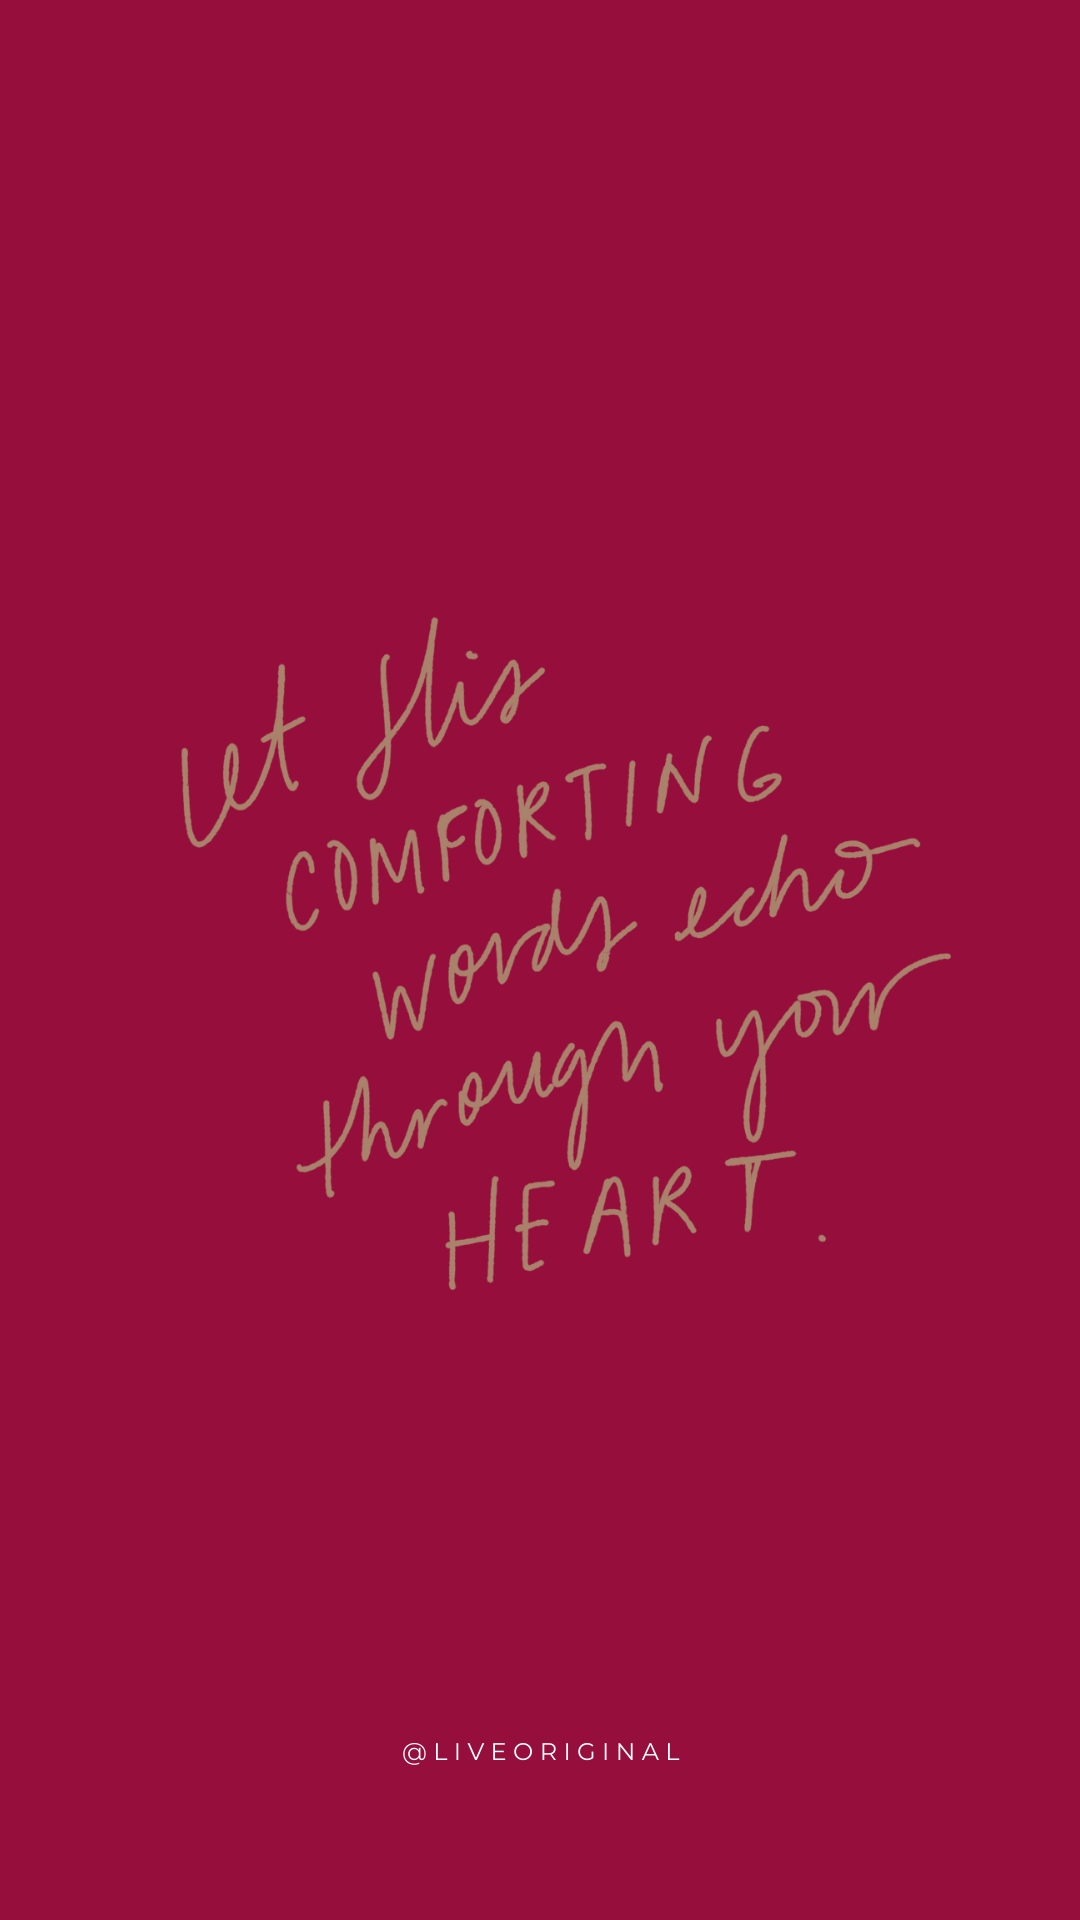 Let His
COMFORTING
words echo
through your
HEART.
@LIVEORIGINAL